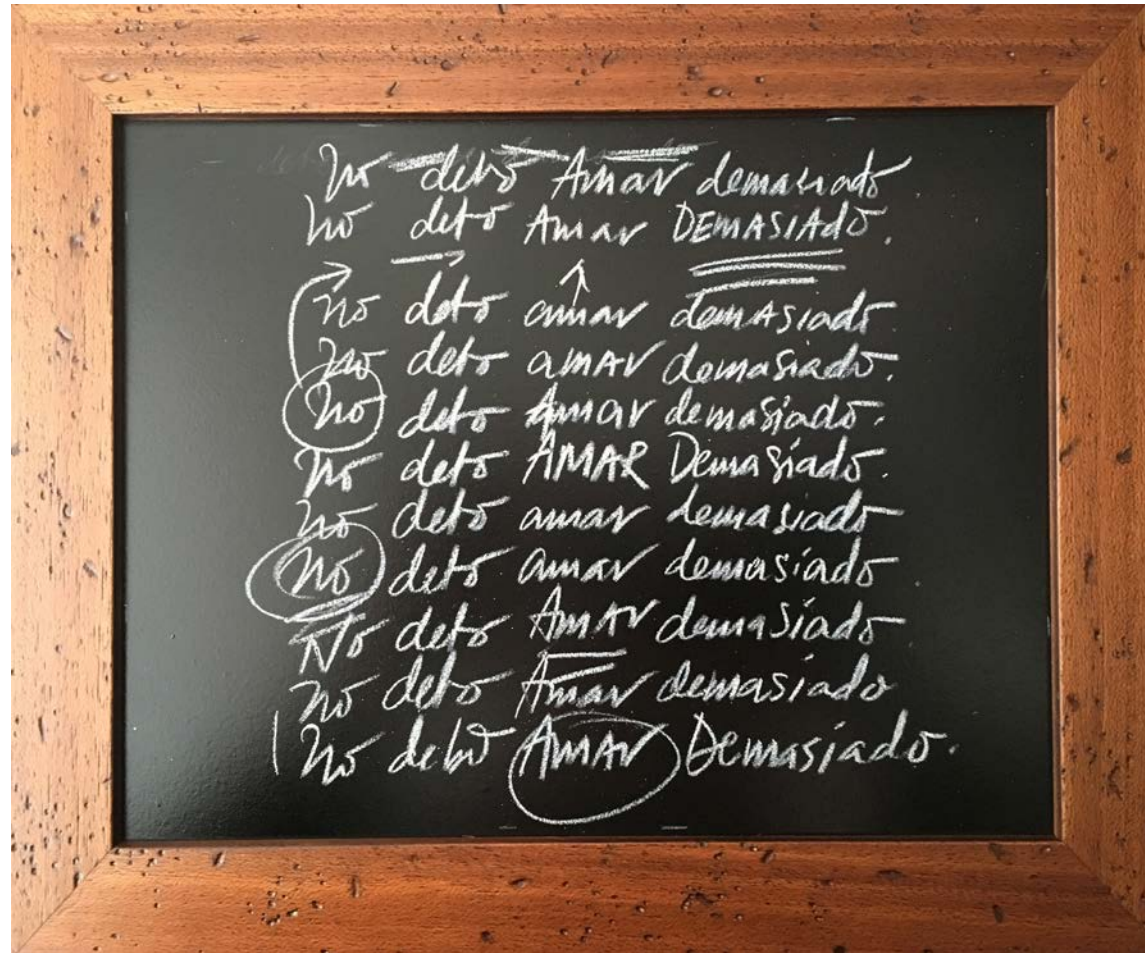 No debo Amar demasiado
no debo Amar DEMASIADO.
no debo amar demAsiado
no debo amAr demasiado.
no debo Amar demasiado.
no debo AMAR Demasiado.
no debo amar demasiado
no debo amar demasiado
No debo AmAr demasiado
no debo Amar demasiado
No debo AmAr Demasiado.